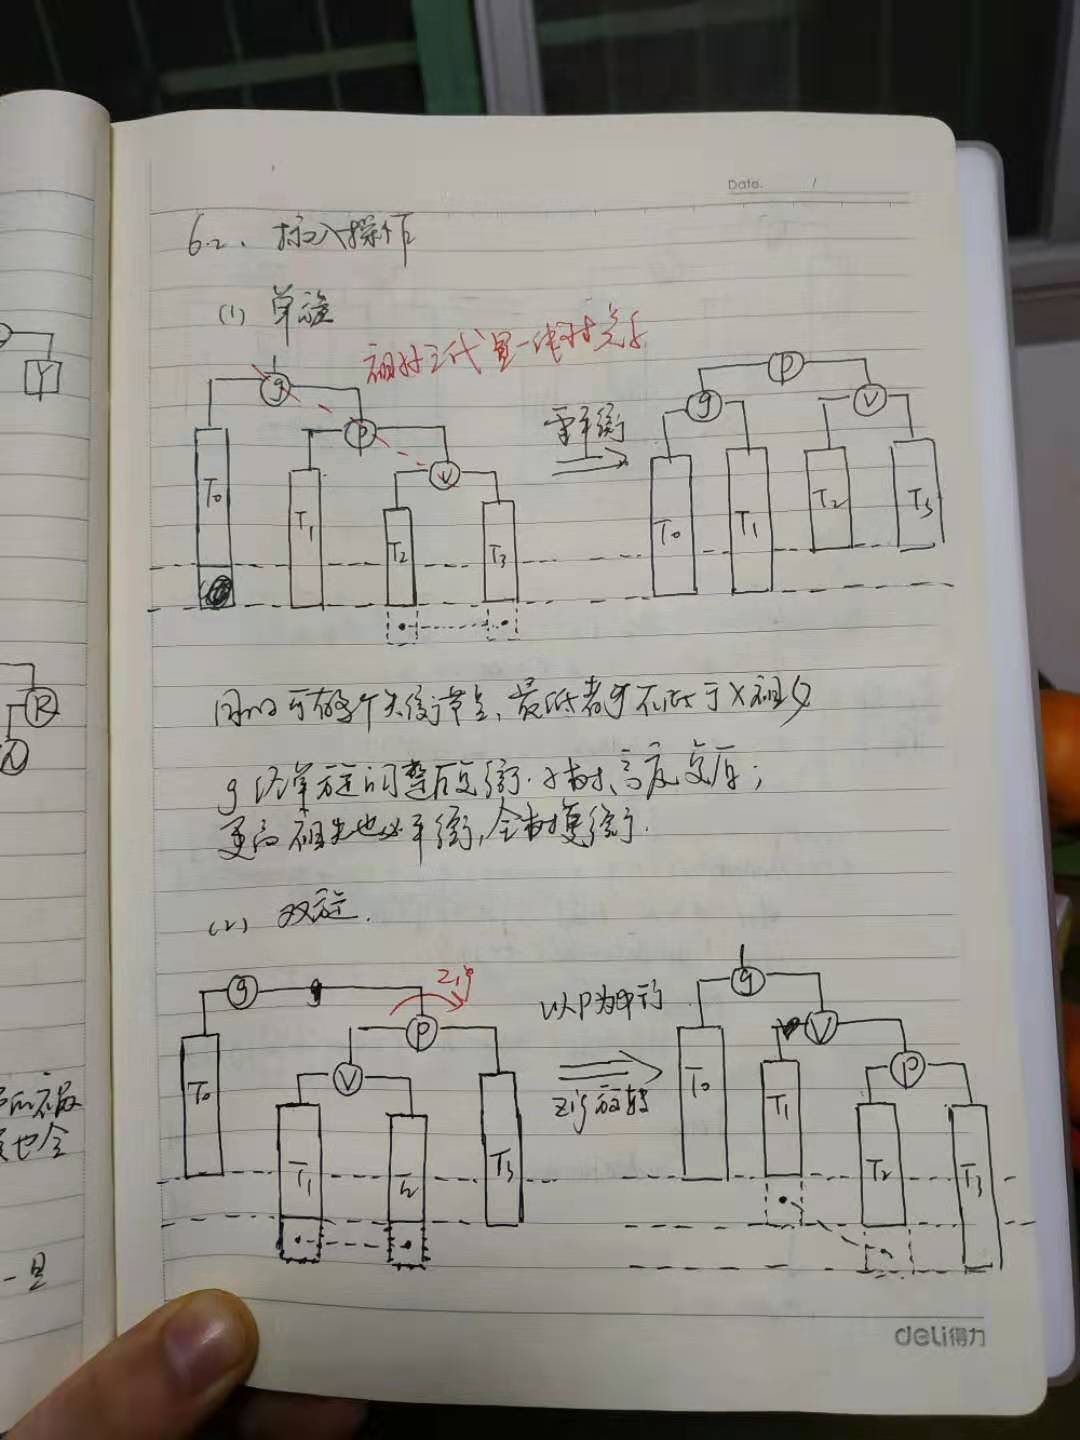 Date. /
6.2. 插入操作
(1) 单旋
祖孙三代呈一线时先
g
p
v
T0
T1
T2
T3
重平衡
p
g
v
T0
T1
T2
T3
同时可有多个失衡节点,最低者g不低于x祖父
g经单旋调整后复衡.子树高度复原;
更高祖先也必平衡,全树复衡.
(2) 双旋.
g
zig
p
v
T0
T1
T2
T3
以P为中
zig旋转
g
v
p
T0
T1
T2
T3
Y
R
也全
一旦
deli得力